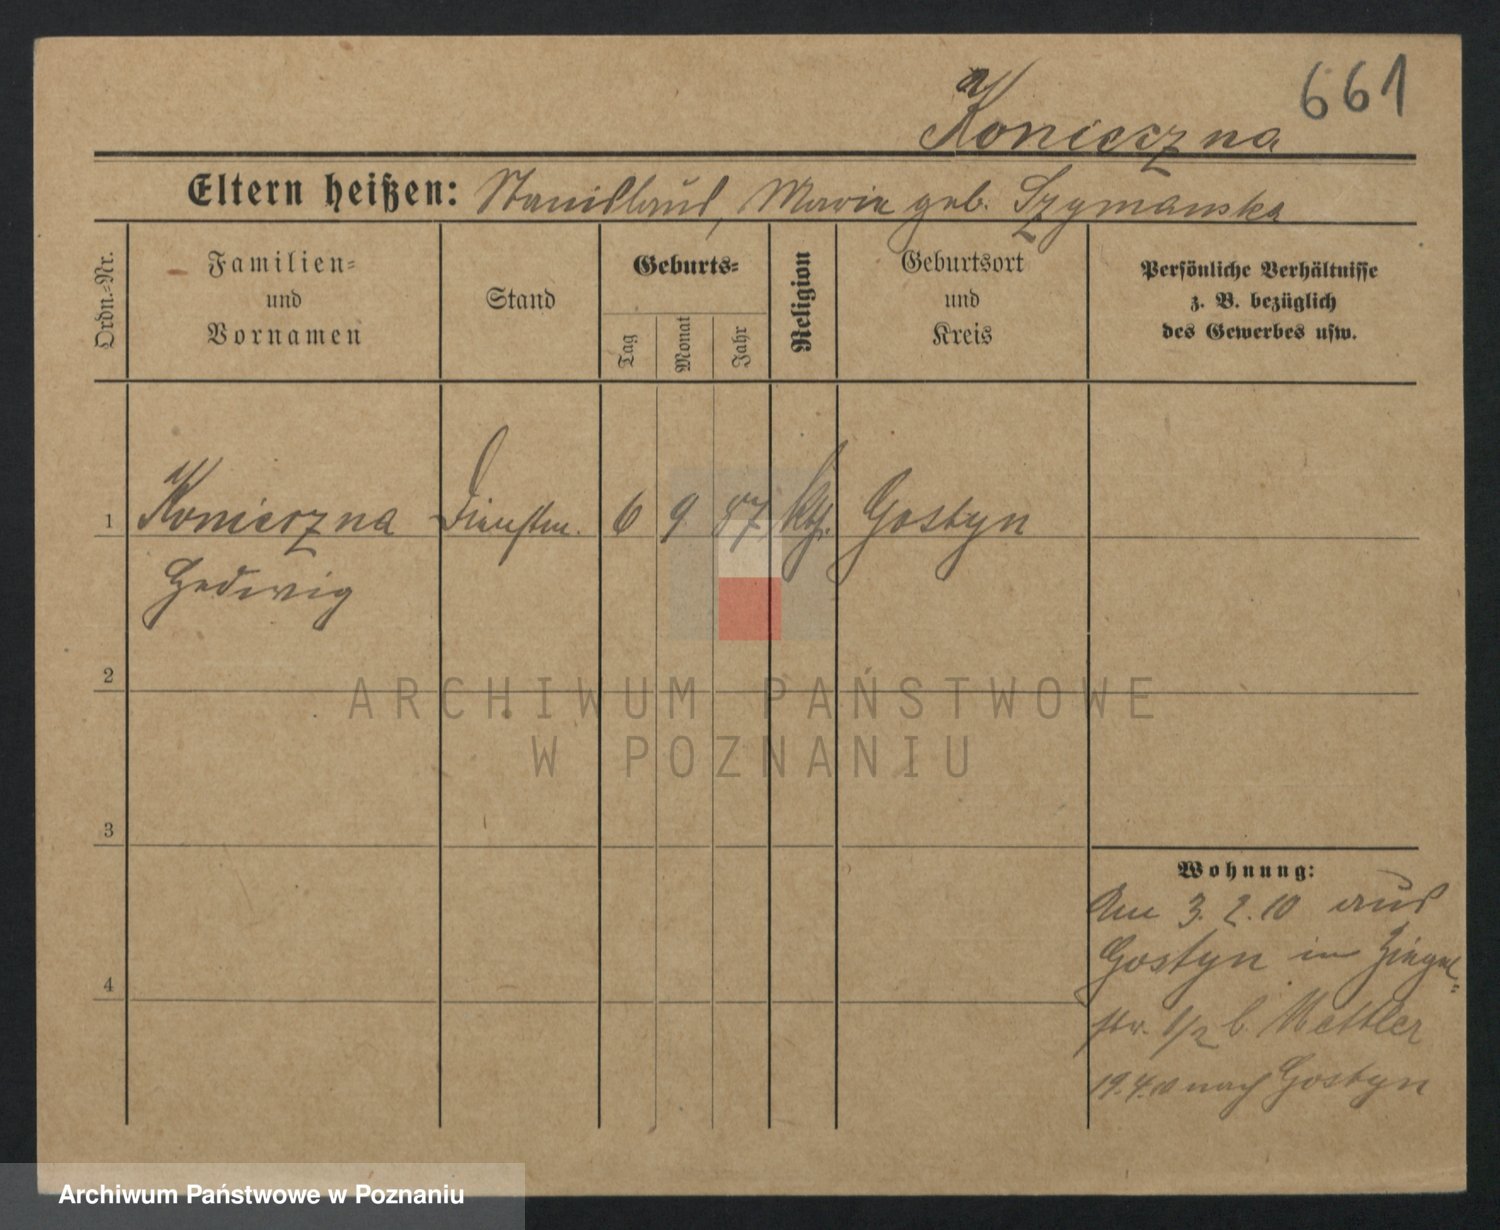 661
Konieczna
Eltern heißen: Stanislaus, Marie geb. Szymanska
Ordn.-Nr.
Familien- und Vornamen
Stand
Geburts-
Tag
Monat
Jahr
Religion
Geburtsort und Kreis
Persönliche Verhältnisse
z. B. bezüglich
des Gewerbes usw.
1 Konieczna Dienstm. 6 9 87 kth. Gostyn
Hedwig
2
3
4
Wohnung:
Am 3.2.10 aus
Gostyn in Ziegel-
str. 1/2 b. Mettler
19.4.10 nach Gostyn
ARCHIWUM PAŃSTWOWE
W POZNANIU
Archiwum Państwowe w Poznaniu